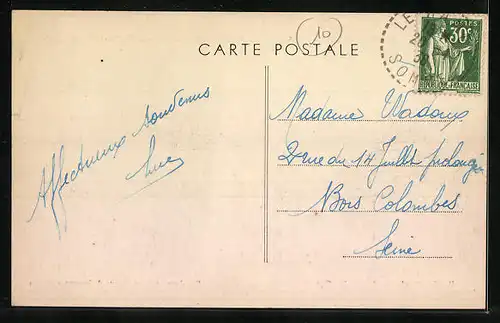 10
CARTE POSTALE
POSTES
30c
RÉPUBLIQUE FRANÇAISE
LE
SOM
Affectueux souvenirs
Luce
Madame Wadoux
2 rue du 14 Juillet prolongé
Bois Colombes
Seine